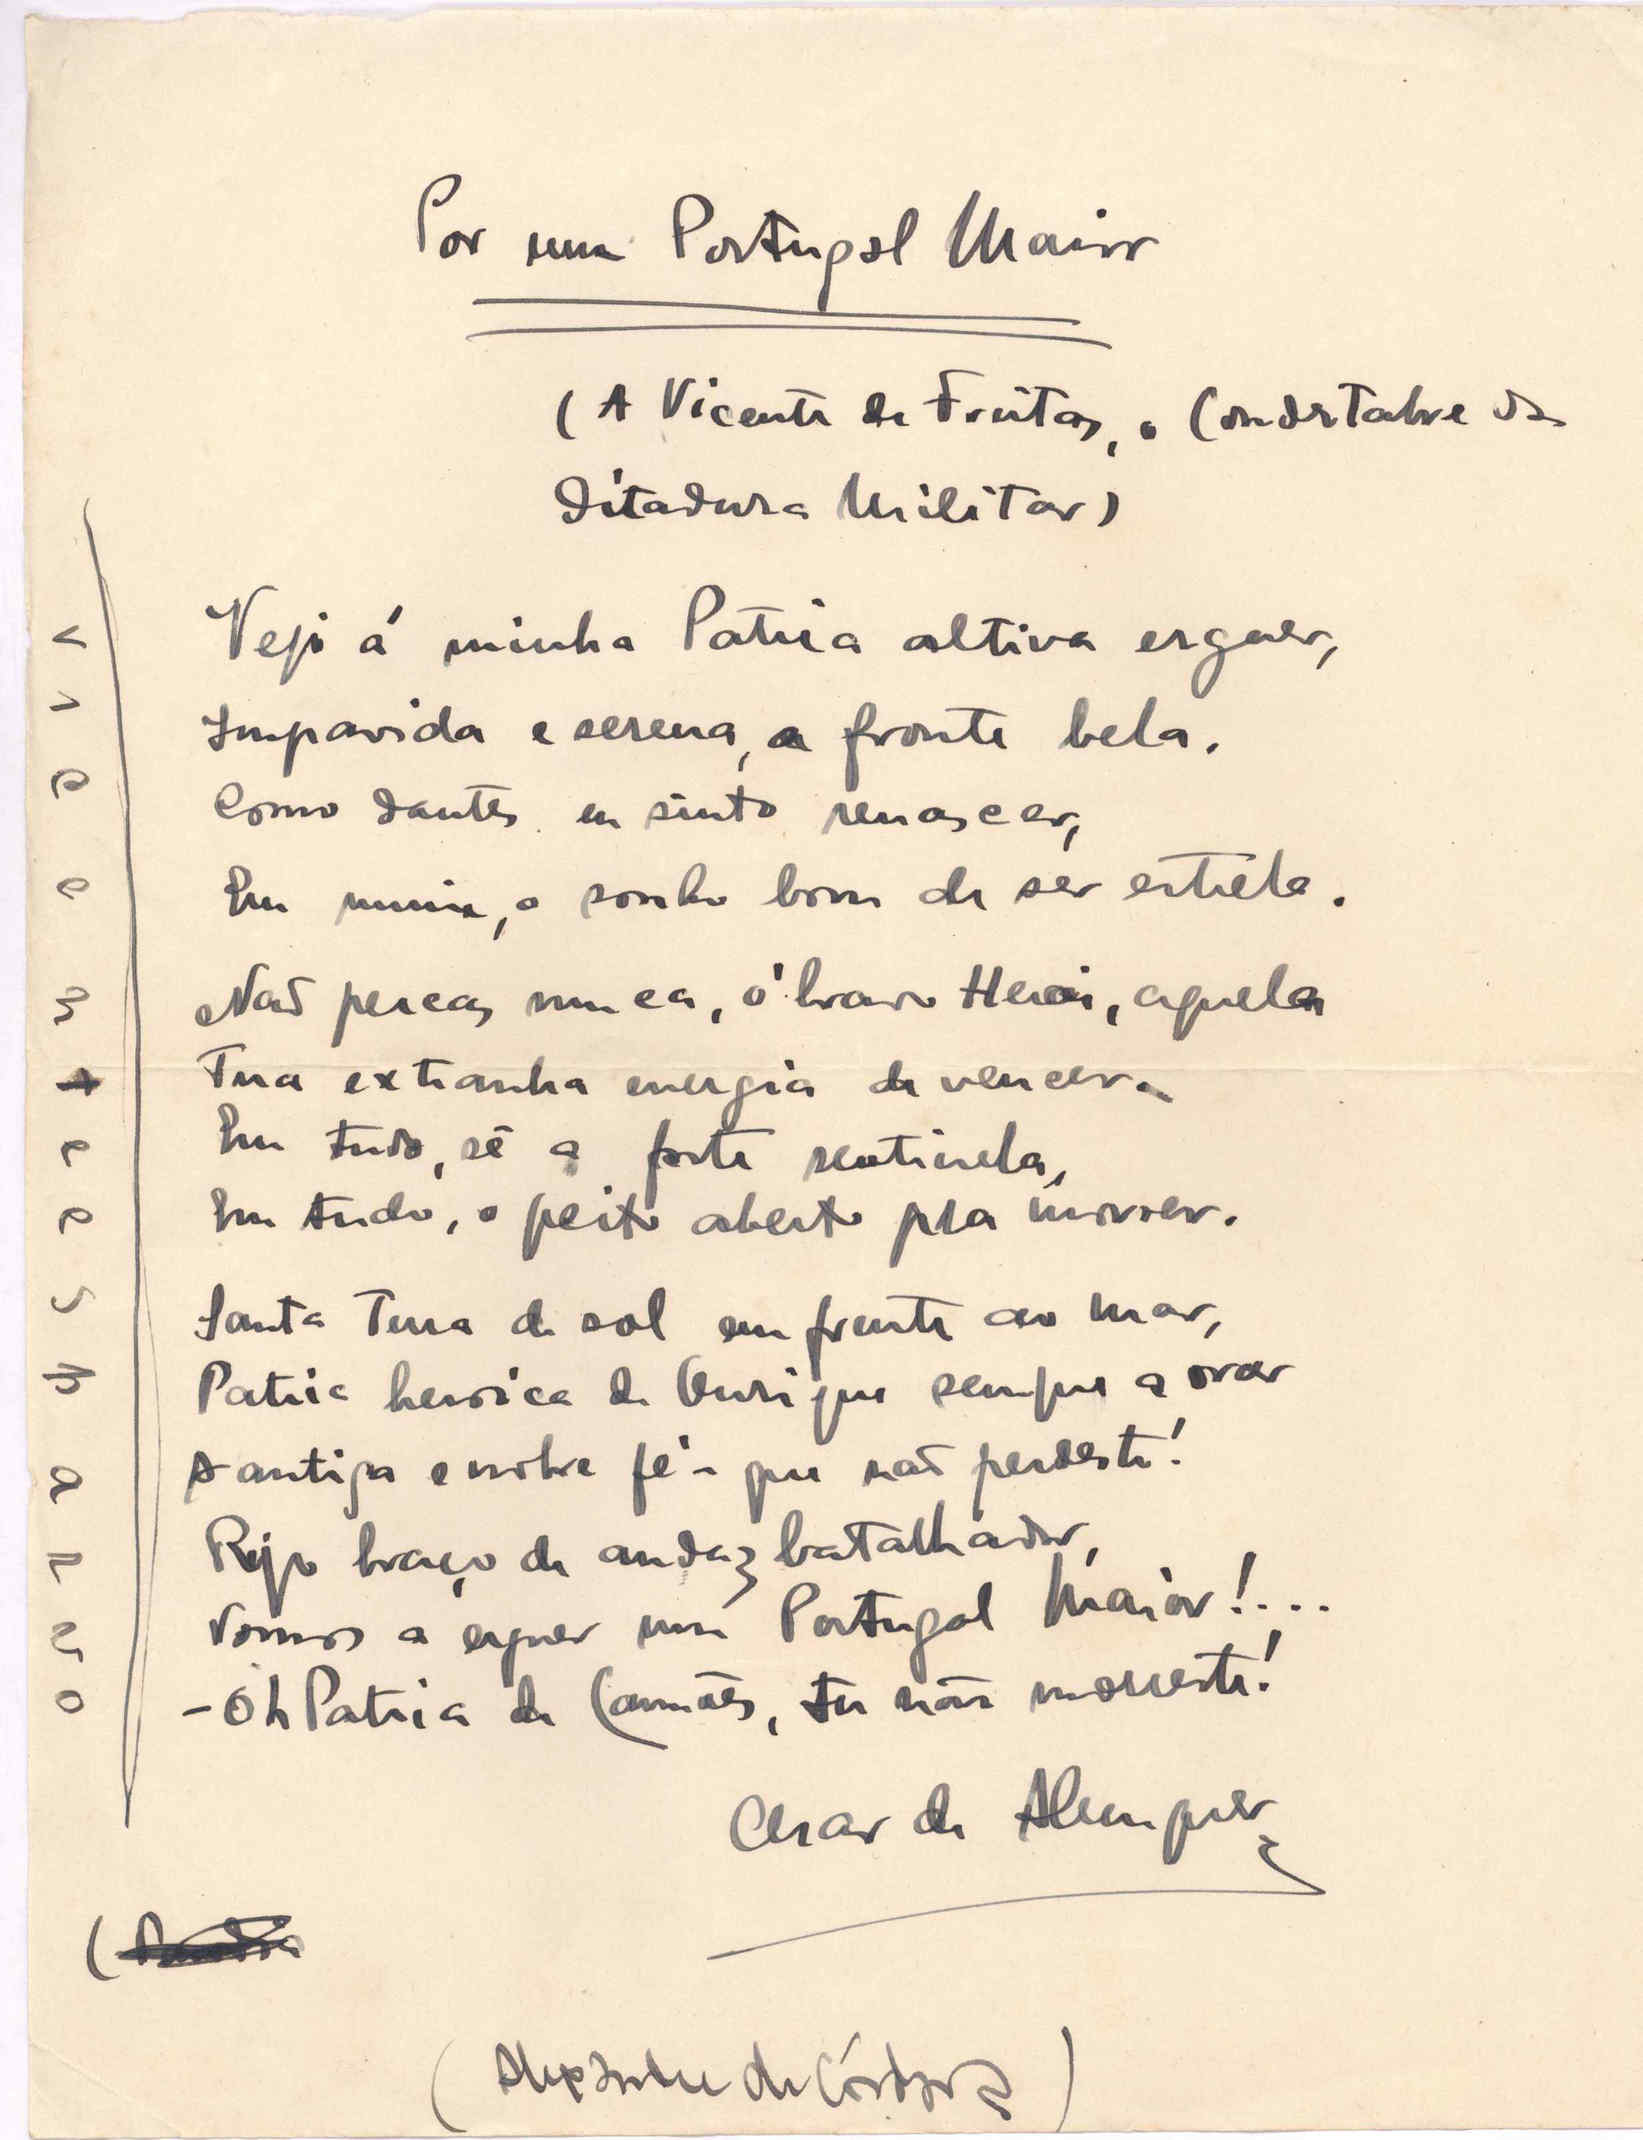 Por um Portugal Maior
(A Vicente de Freitas, o Condestabre da
Ditadura Militar)
Vejo á minha Patria altiva erguer,
Impavida e serena, a fronte bela.
Como dantes eu sinto renascer,
Em mim, o sonho bom de ser estrela.
Não percas nunca, ó bravo Heroi, aquela
Tua extranha energia de vencer.
Em tudo, sê a forte sentinela,
Em tudo, o peito aberto pra morrer.
Santa Terra de sol em frente ao mar,
Patria heroica de Ourique sempre a orar
A antiga e nobre fé - que não perdeste!
Rijo braço de audaz batalhador,
Vamos a erguer um Portugal Maior!...
- Oh Patria de Camões, tu não morreste!
Cesar de
(
(Alexandre de Córdova)
V
I
C
E
N
T
E
E
S
P
A
R
V
O